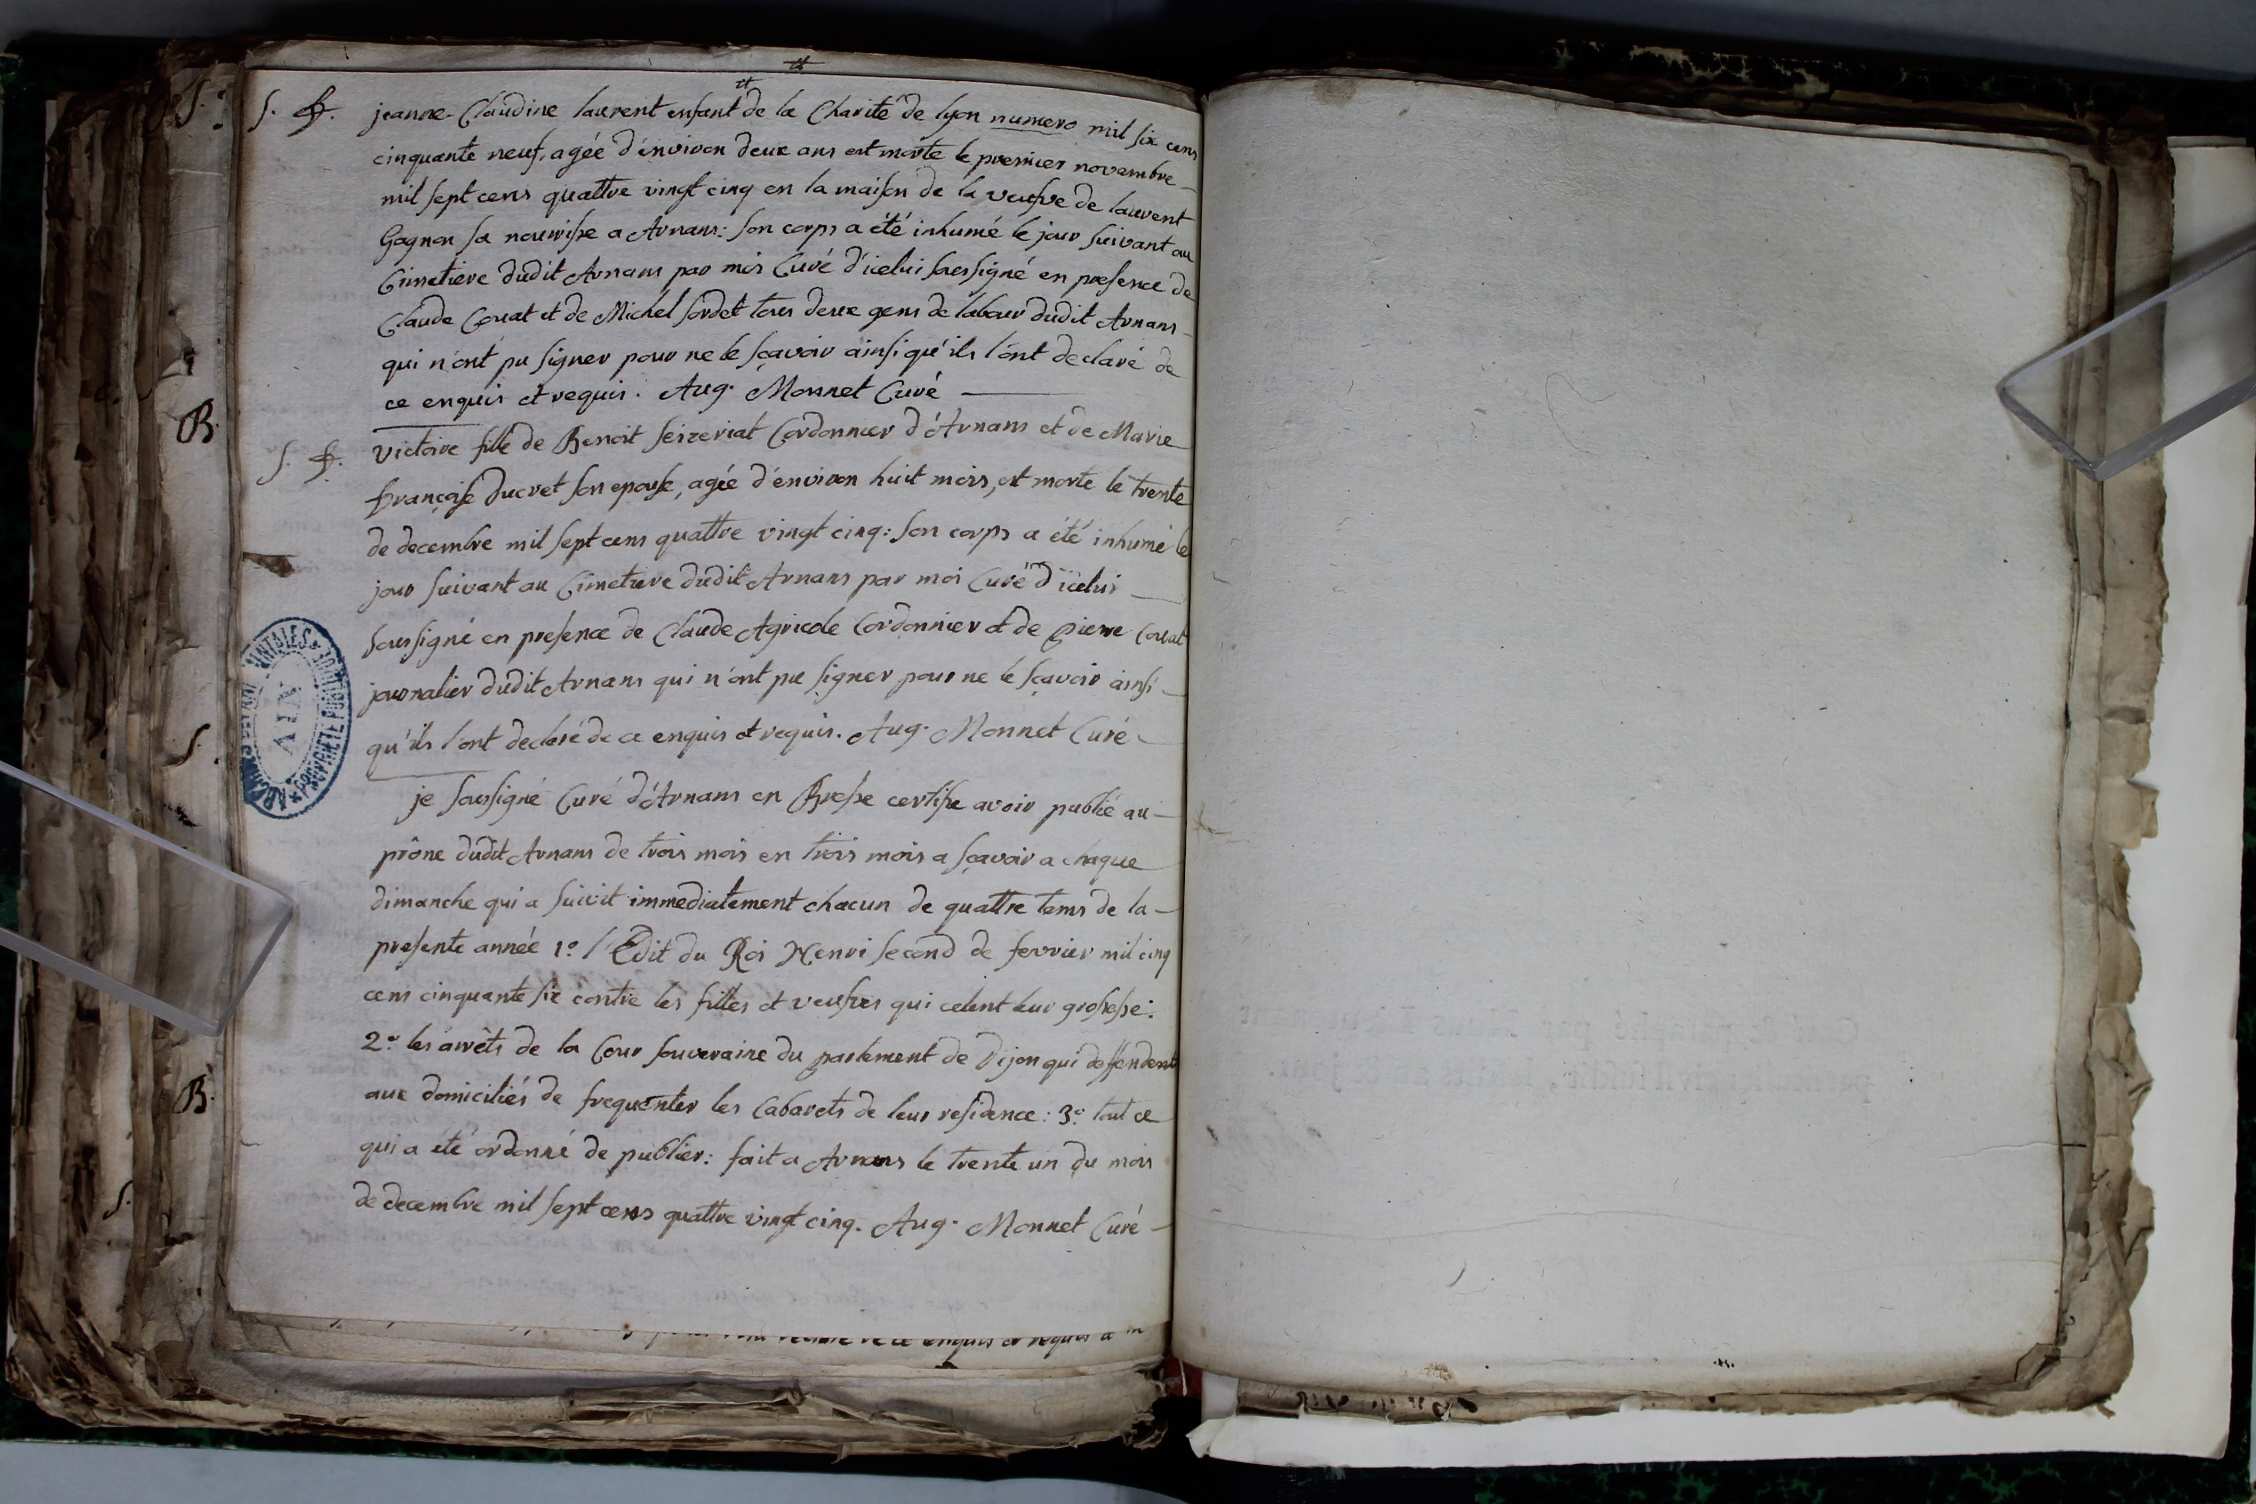 S. f. jeanne-Claudine laurent enfant de la Charité de lyon numero mil six cens
cinquante neuf, agée d'énviron deux ans est morte le premier novembre
mil sept cens quattre vingt cinq en la maison de la veufve de laurent
Gagnon sa nourrisse a Arnans: son corps a été inhumé le jour suivant au
Cimetiere dudit Arnans par moi Curé d'icelui soussigné en presence de
Claude Couat et de Michel sordet tous deux gens de labour dudit Arnans
qui n'ont pu signer pour ne le sçavoir ainsi qu'ils l'ont declaré de
ce enquis et requis. Aug. Monnet Curé
S. f. victoire fille de Benoit seizeriat Cordonnier d'Arnans et de Marie
françoise Ducret son epouse, agée d'énviron huit mois, est morte le trente
de decembre mil sept cens quattre vingt cinq: son corps a été inhumé le
jour suivant au Cimetiere dudit Arnans par moi Curé d'icelui
soussigné en presence de Claude Agricole Cordonnier et de pierre Couat
journalier dudit Arnans qui n'ont pu signer pour ne le sçavoir ainsi
qu'ils l'ont declaré de ce enquis et requis. Aug. Monnet Curé
je soussigné Curé d'Arnans en Bresse certifie avoir publié au
prône dudit Arnans de trois mois en trois mois a sçavoir a chaque
dimanche qui a suivit immediatement chacun de quattre tems de la
presente année 1.º l'Edit du Roi Henri second de fevrier mil cinq
cens cinquante six contre les filles et veufves qui celent leur grossesse:
2.º les arrêts de la Cour souveraine du parlement de Dijon qui deffendent
aux domiciliés de frequenter les Cabarets de leur residence: 3.º tout ce
qui a été ordonné de publier: fait a Arnans le trente un du mois
de decembre mil sept cens quattre vingt cinq. Aug. Monnet Curé
B.
S.
B.
S.
AIN